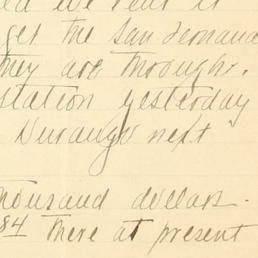 we rent it
get the San Fernando
they are through.
station yesterday
Durango next
thousand dollars.
84 there at present